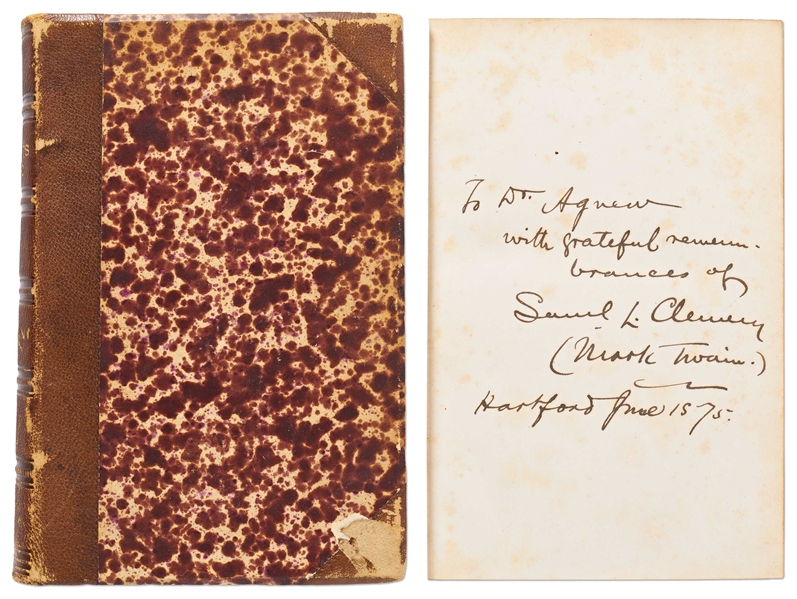 To Dr. Agnew
with grateful remem-
brances of
Saml L. Clemens
(Mark Twain.)
Hartford June 1875.